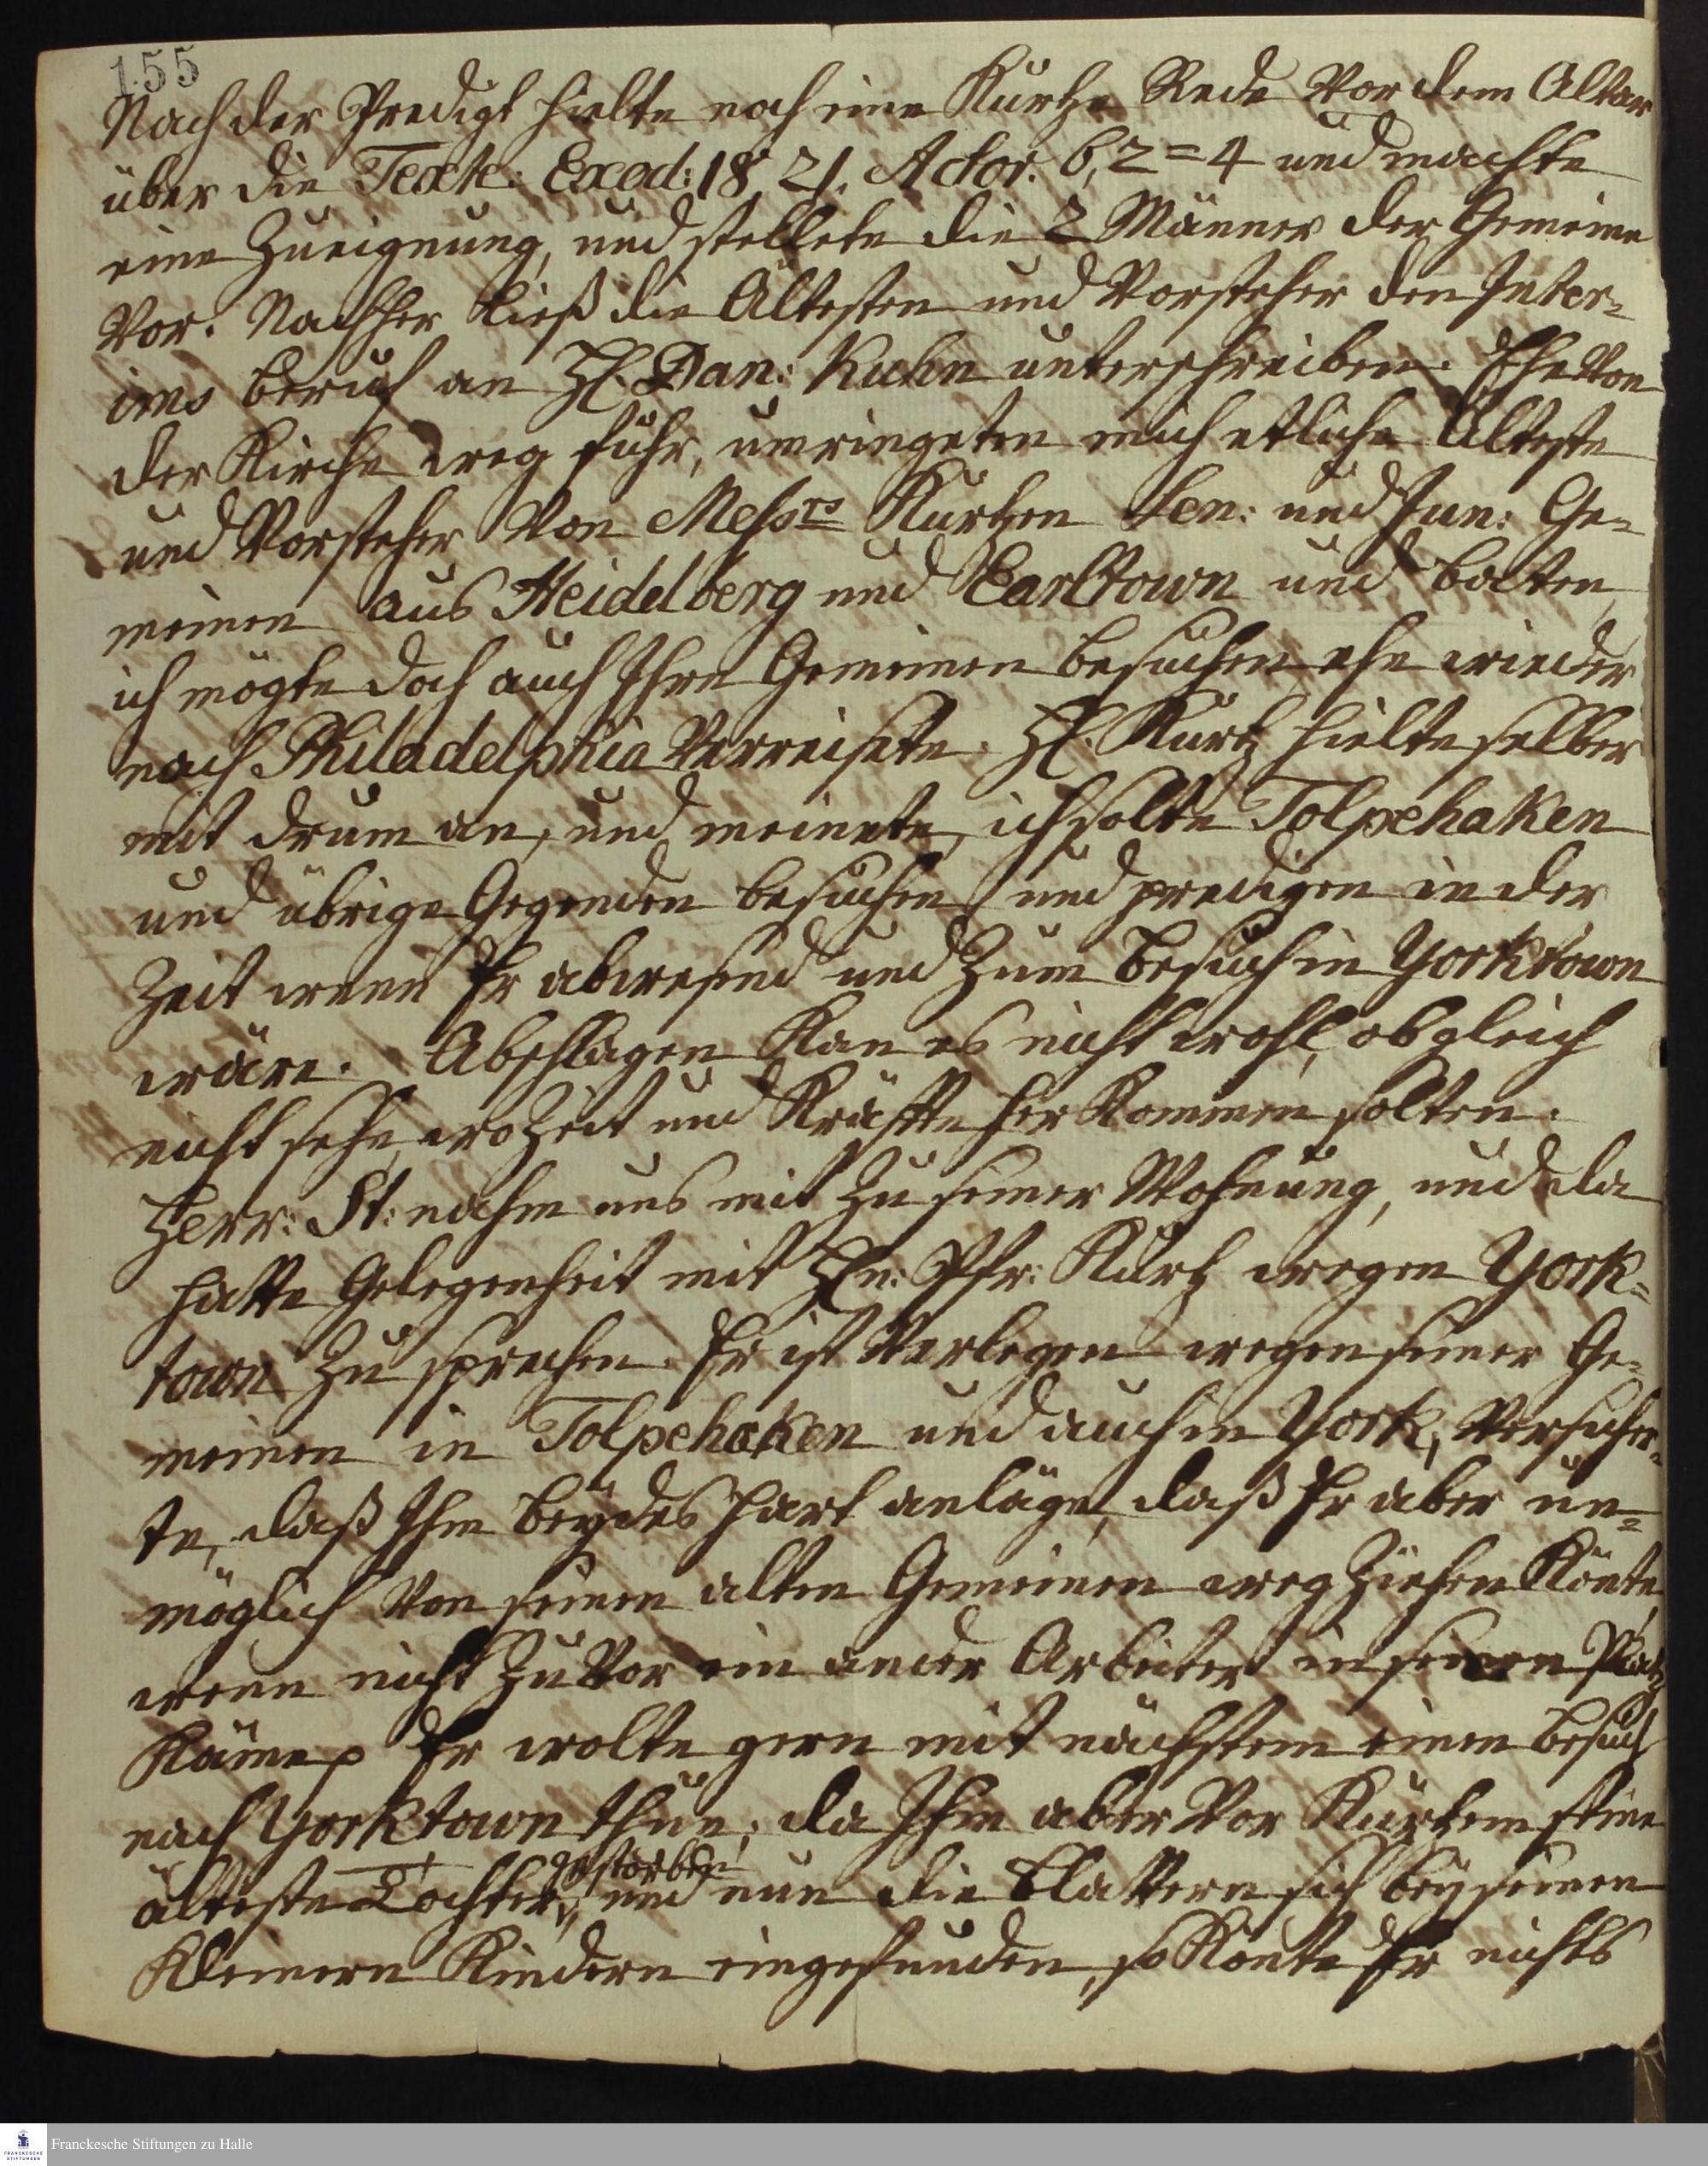 155
Nach der Predigt hielte noch eine Kurtze Rede Vor dem Altar
über die Texte: Exod: 18, 21. Actor. 6, 2=4 und machte
eine Zueignung, und stellete die 2 Männer der Gemeine
Vor. Nachher ließ die Ältesten und Vorsteher den Inter=
ims Beruf an HE. Dan: Kuhn unterschreiben. Ehe Von
der Kirche weg fuhr, umringeten mich etliche Älteste
und Vorsteher Von Messrs Kurtzen Sen: und Jun: Ge=
meinen aus Heidelberg und Earltown und baten,
ich mögte doch auch Ihre Gemeinen besuchen ehe wieder
nach Philadelphia Verreisete. HE. Kurtz hielte selber
mit drum an, und meinete, ich solte Tolpehaken
und übrige Gegenden besuchen und predigen in der
Zeit wenn Er abwesend und zum Besuch in Yorktown
wäre. Abschlagen Kan es nicht wohl, obgleich
nicht sehe, wo Zeit und Kräffte her Kommen solten.
Herr: St: nahm uns mit zu seiner Wohnung, und da
hatte Gelegenheit mit HEn: Pfr: Kurtz wegen York=
town zu sprechen. Er ist Verlegen wegen seiner Ge=
meinen in Tolpehaken und auch in York, Versicher=
te, daß Ihm beydes hart anläge, daß Er aber un=
möglich Von seinen alten Gemeinen weg ziehen Könte,
wenn nicht zuvor ein ander Arbeiter in seinen Platz
Käme p Er wolte gern mit nächstem einen Besuch
nach Yorktown thun; da Ihm aber Vor Kurtzem seine
gestorben
älteste Tochter, und nun die Blattern sich bey seinen
Kleinern Kindern eingefunden, so Konte Er nichts
Franckesche Stiftungen zu Halle
FRANCKESCHE STIFTUNGEN